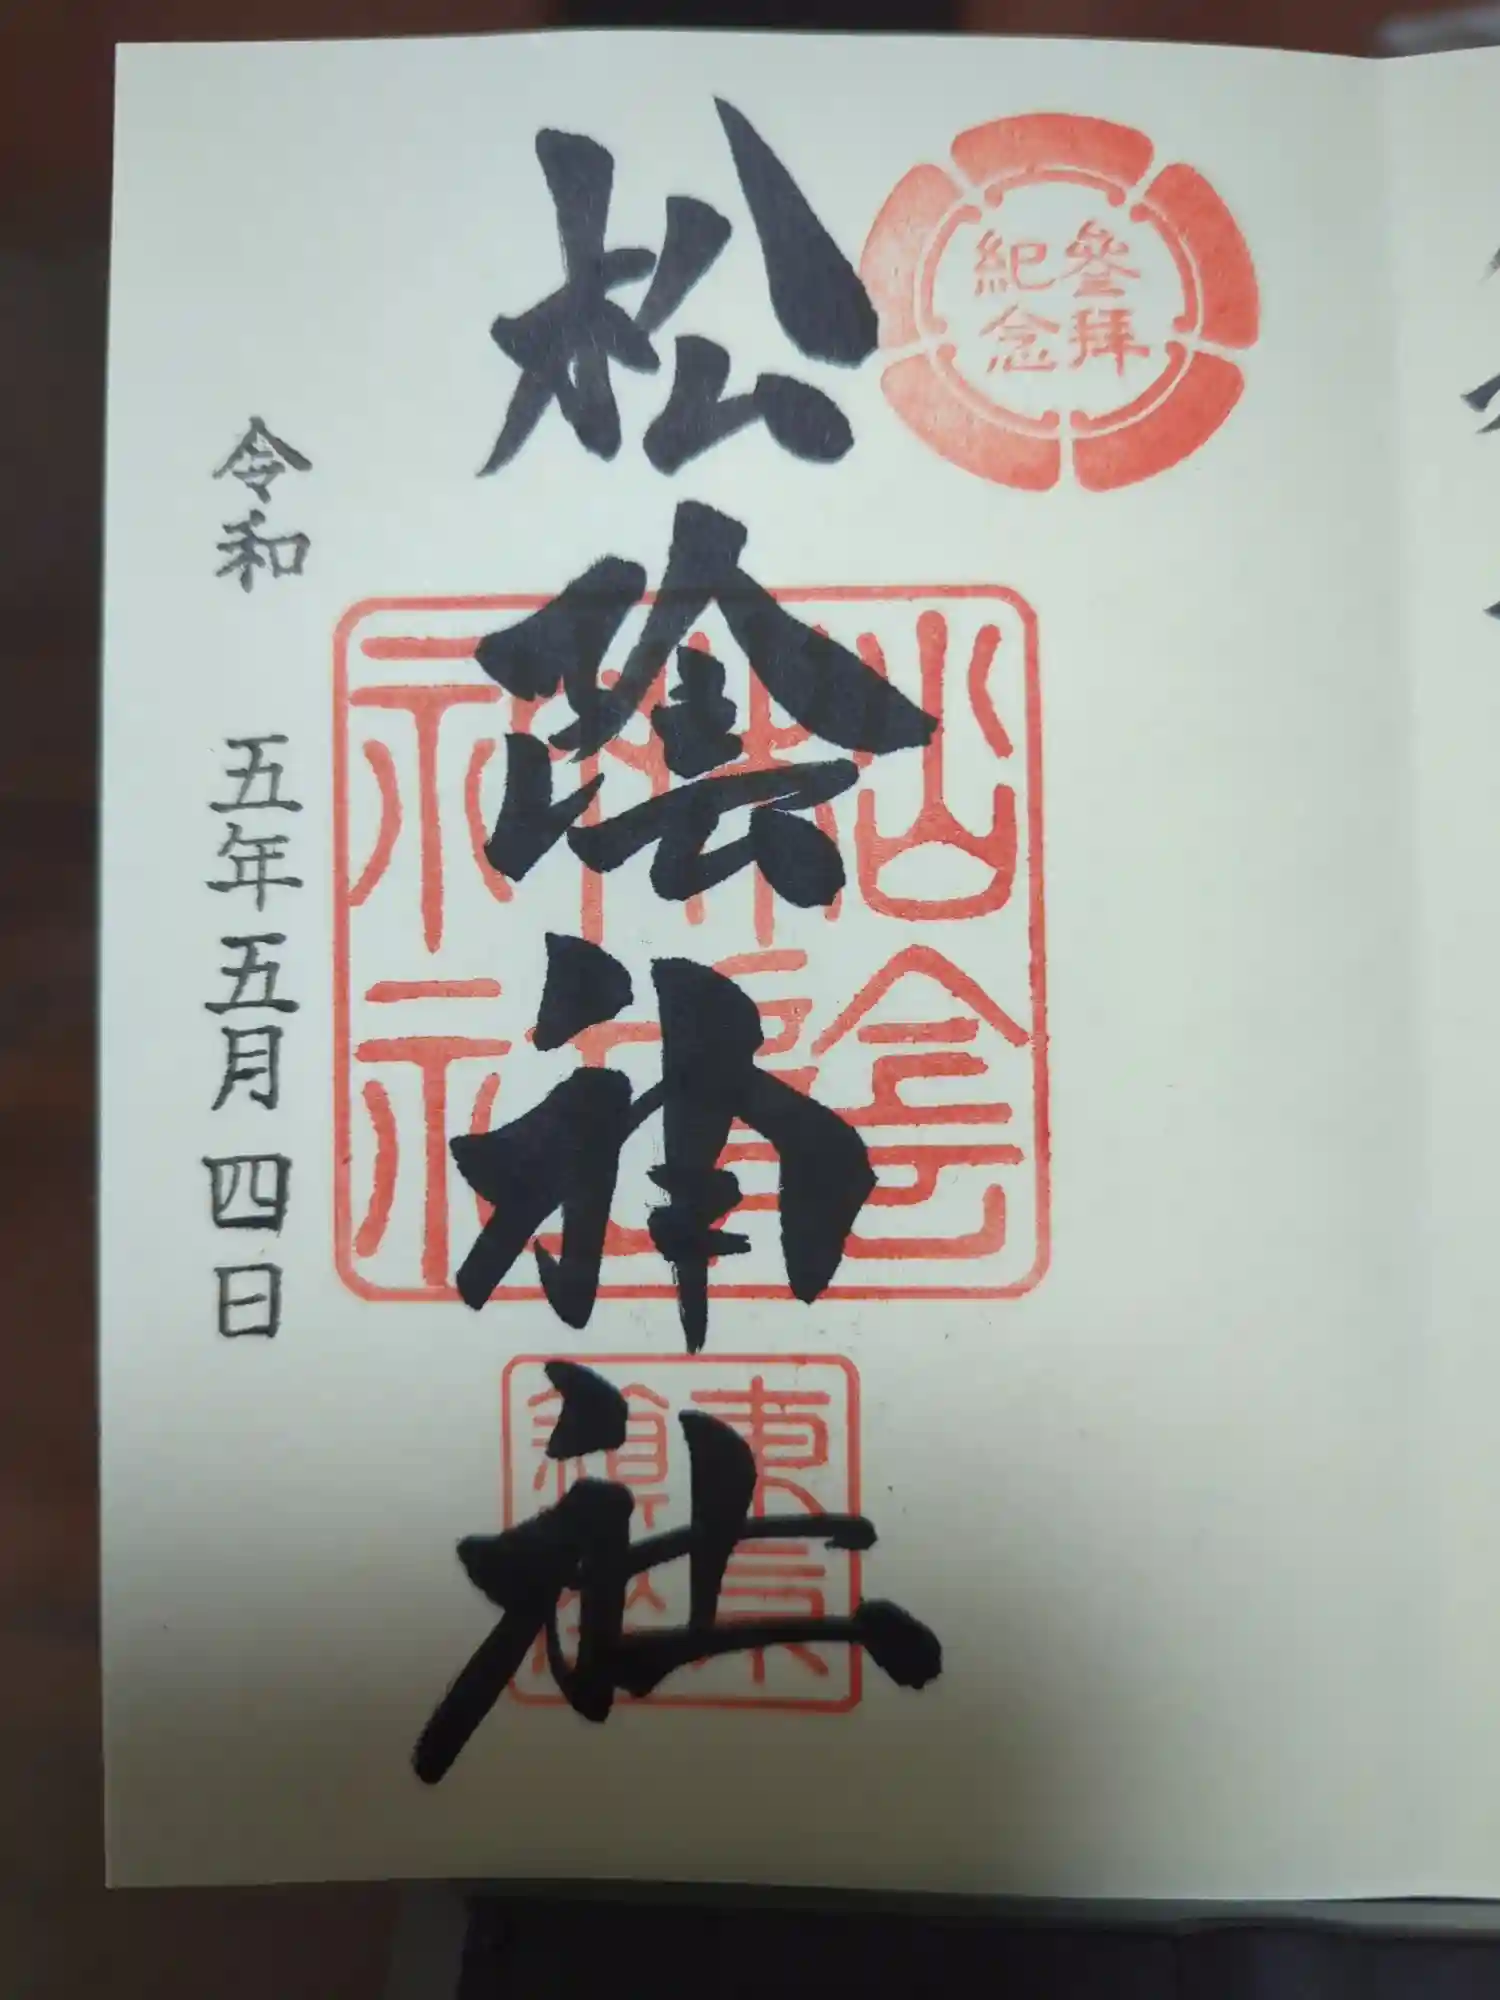 參拜
紀念
松陰神社
松陰
神社
東京
鎮座
令和 五年五月四日